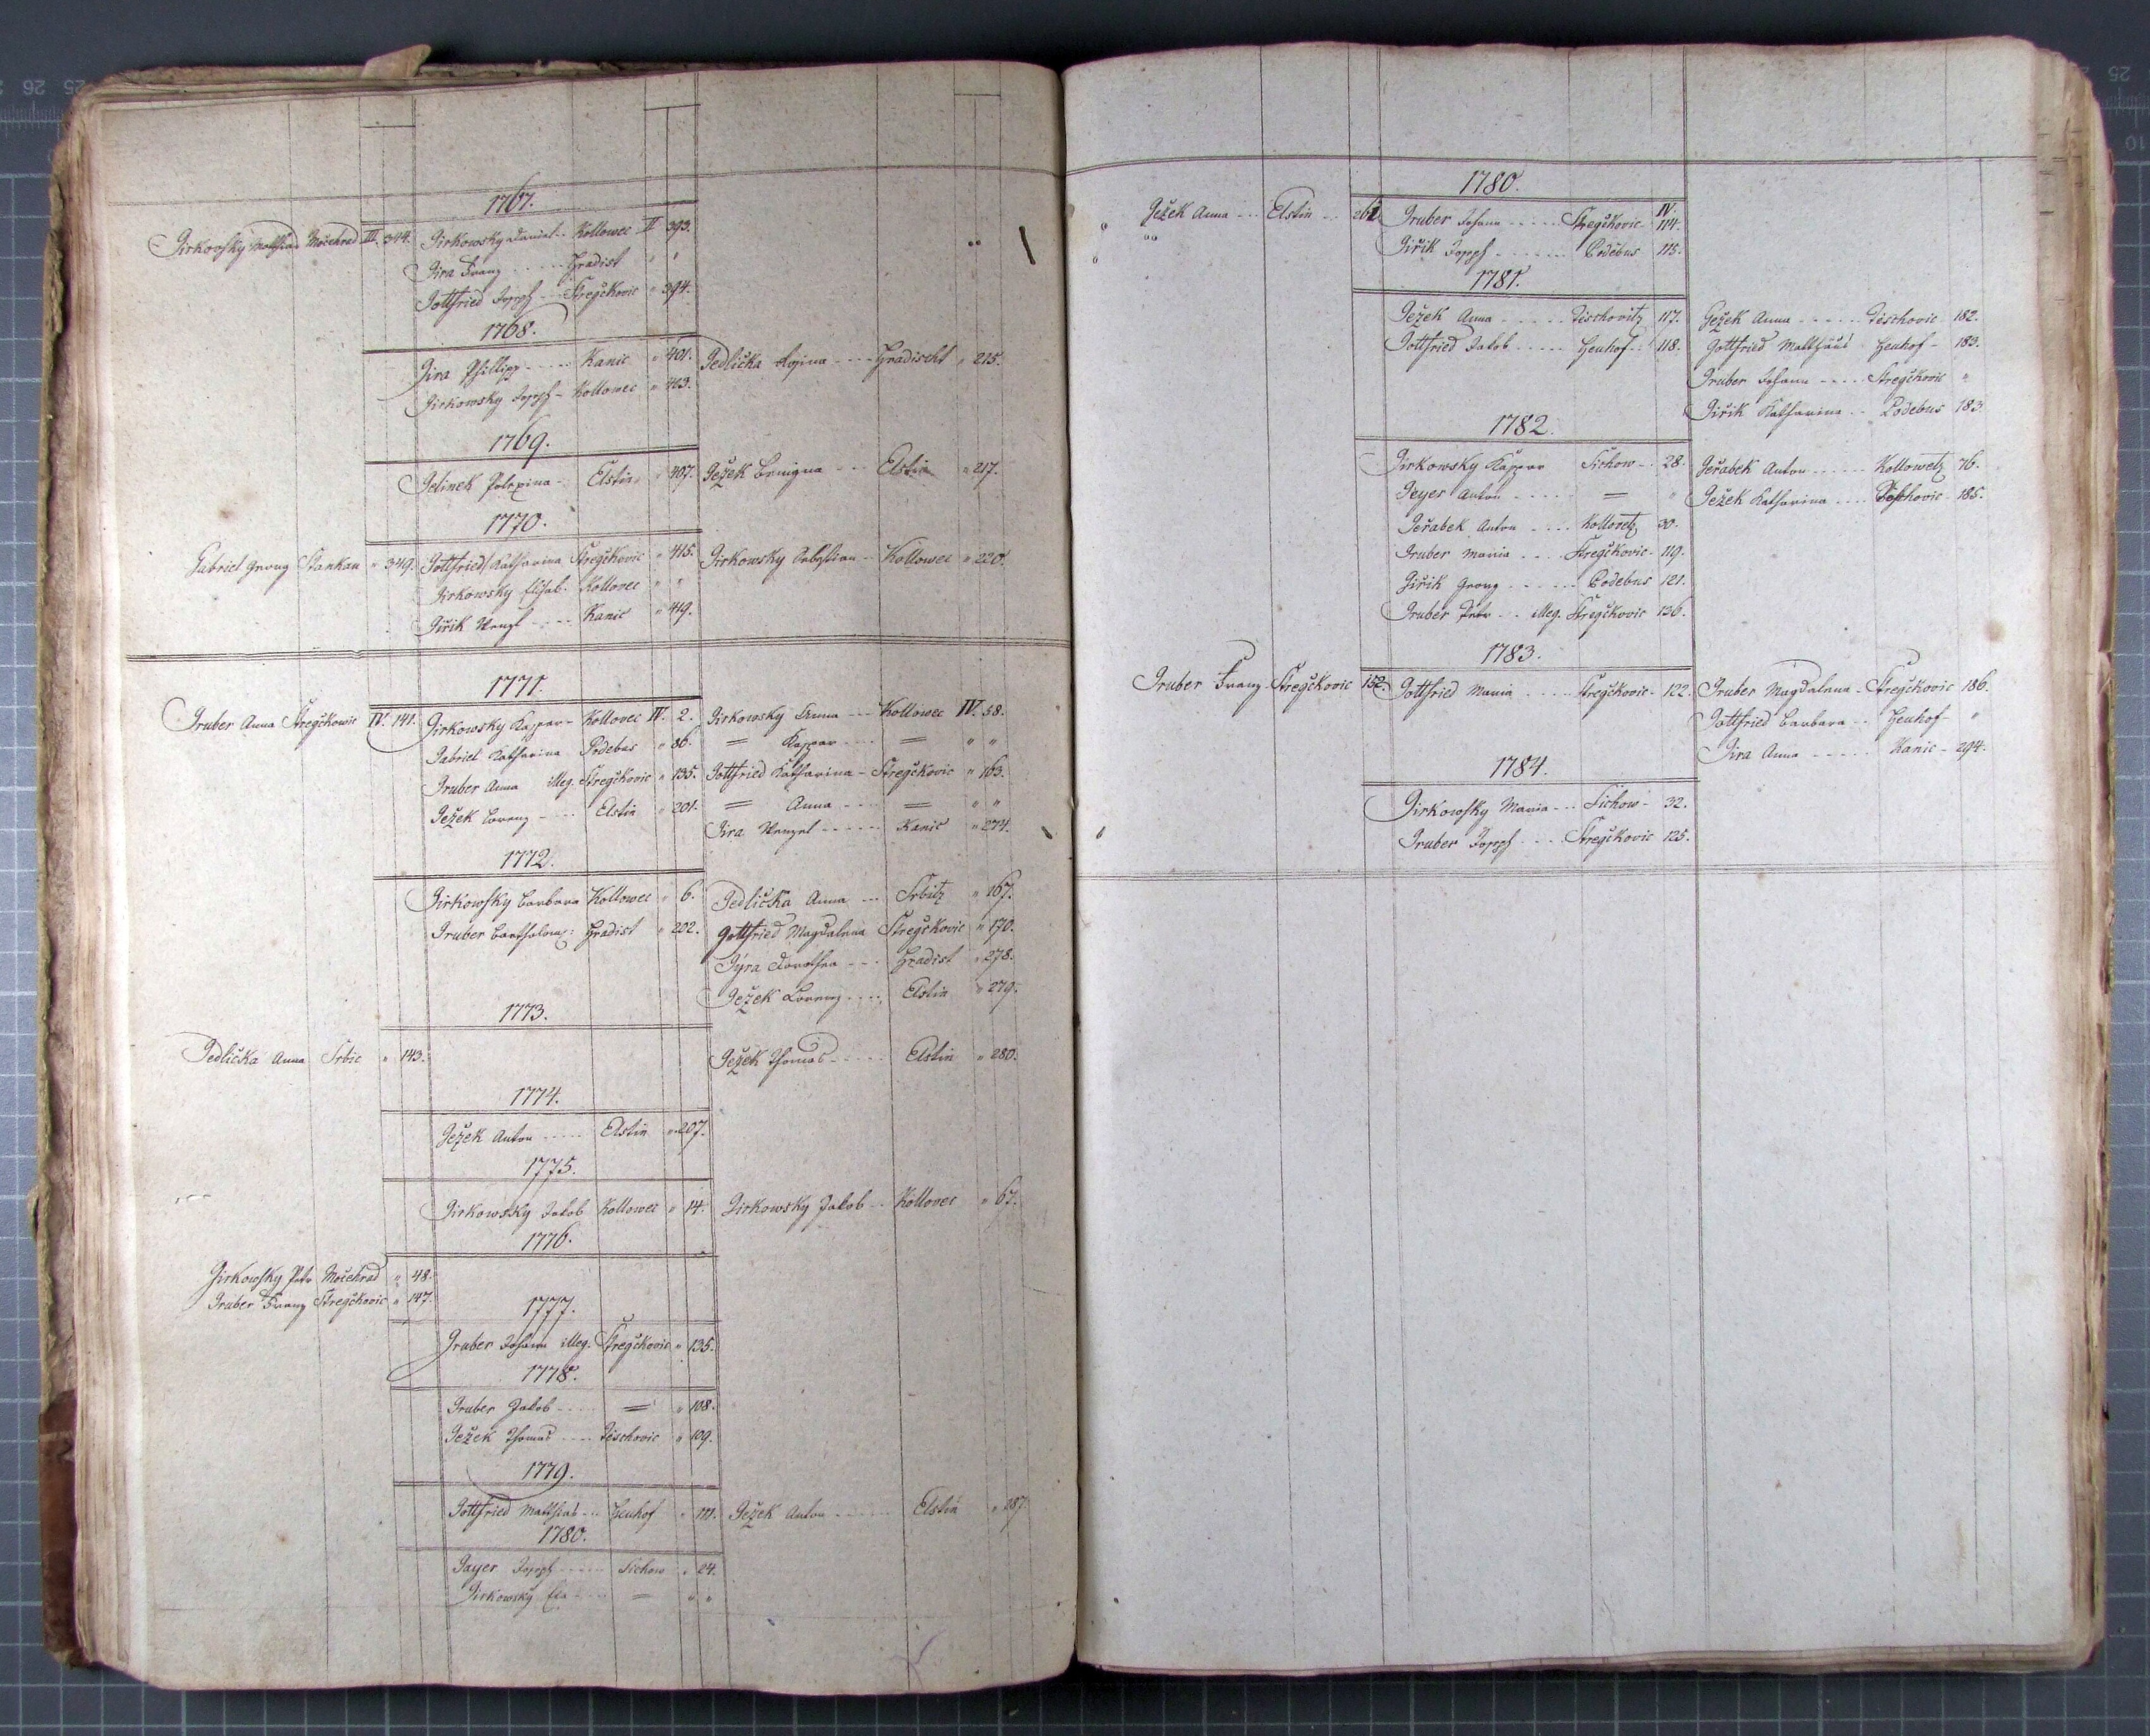 1767.
Girkovsky Matthias Močehrad III. 344. Girkowsky Daniel Kollowec II 393.
Gira Franz Hradist " "
Gottfried Joseph Stregčkovic " 394.
1768.
Gira Phillipp Kanic " 401. Jedlička Regina Hradischt " 215.
Girkowsky Joseph Kollowec " 403.
1769.
Jelinek Polexina Elstin " 407. Ježek Benigna Elstin " 217.
1770.
Gabriel Georg Stankau " 349. Gottfried Katharina Stregčkovic " 415. Girkowsky Sebastian Kollowec " 220.
Girkowsky Elisab. Kollovec " "
Giřik Wenzl Kanic " 419.
1771.
Gruber Anna Stregčkowic IV. 141. Girkowsky Kaspar Kollovec IV. 2. Girkowsky Anna Kollowec IV. 58.
Gabriel Katharina Podebus " 86. = Kaspar = " "
Gruber Anna illeg. Stregčkovic " 135. Gottfried Katharina Stregčkovic " 163.
Ježek Lorenz Elstin " 201. = Anna = " "
Gira Wenzel Kanic " 274.
1772.
Girkowsky Barbara Kollowec " 6. Jedlička Anna Srbitz " 167.
Gruber Bartholme: Hradist " 202. Gottfried Magdalena Stregčkovic " 170.
Gyra Dorothea Hradist " 278.
Ježek Lorenz Elstin " 279.
1773.
Jedlička Anna Srbic " 143. Ježek Thomas Elstin " 280.
1774.
Ježek Anton Elstin " 207.
1775.
Girkowsky Jakob Kollowec " 14. Girkowsky Jakob Kollovec " 67.
1776.
Girkowsky Petr Močehrad " 48.
Gruber Franz Stregčkovic " 147.
1777.
Gruber Johann illeg. Stregčkovic " 135.
1778.
Gruber Jakob = " 108.
Ježek Thomas Tëschovic " 109.
1779.
Gottfried Matthias Heuhof " 111. Ježek Anton Elstin " 287.
1780.
Gayer Joseph Sichow " 24.
Girkowsky Eva = " "
1780.
Ježek Anna Elstin 262 Gruber Johann Stregčkovic IV. 114.
Giřik Joseph Podëbus 115.
1781.
Ježek Anna Tischovitz 117. Ježek Anna Tëschovic 182.
Gottfried Jakob Heuhof 118. Gottfried Matthäus Heuhof 183.
Gruber Johann Stregčkovic "
Giřik Katharina Podebus 183.
1782.
Girkowsky Kaspar Sichow 28. Jeřabek Anton Kollowetz 76.
Geyer Anton = " Ježek Katharina Teschovic 185.
Jeřabek Anton Kollovetz 30.
Gruber Maria Stregčkovic 119.
Giřik Georg Podebus 121.
Gruber Petr illeg. Stregčkovic 136.
1783.
Gruber Franz Stregčkovic 152. Gottfried Maria Stregčkovic 122. Gruber Magdalena Stregčkovic 186.
Gottfried Barbara Heuhof "
Gira Anna Kanic 294.
1784.
Girkowsky Maria Sichow 32.
Gruber Joseph Stregčkovic 125.